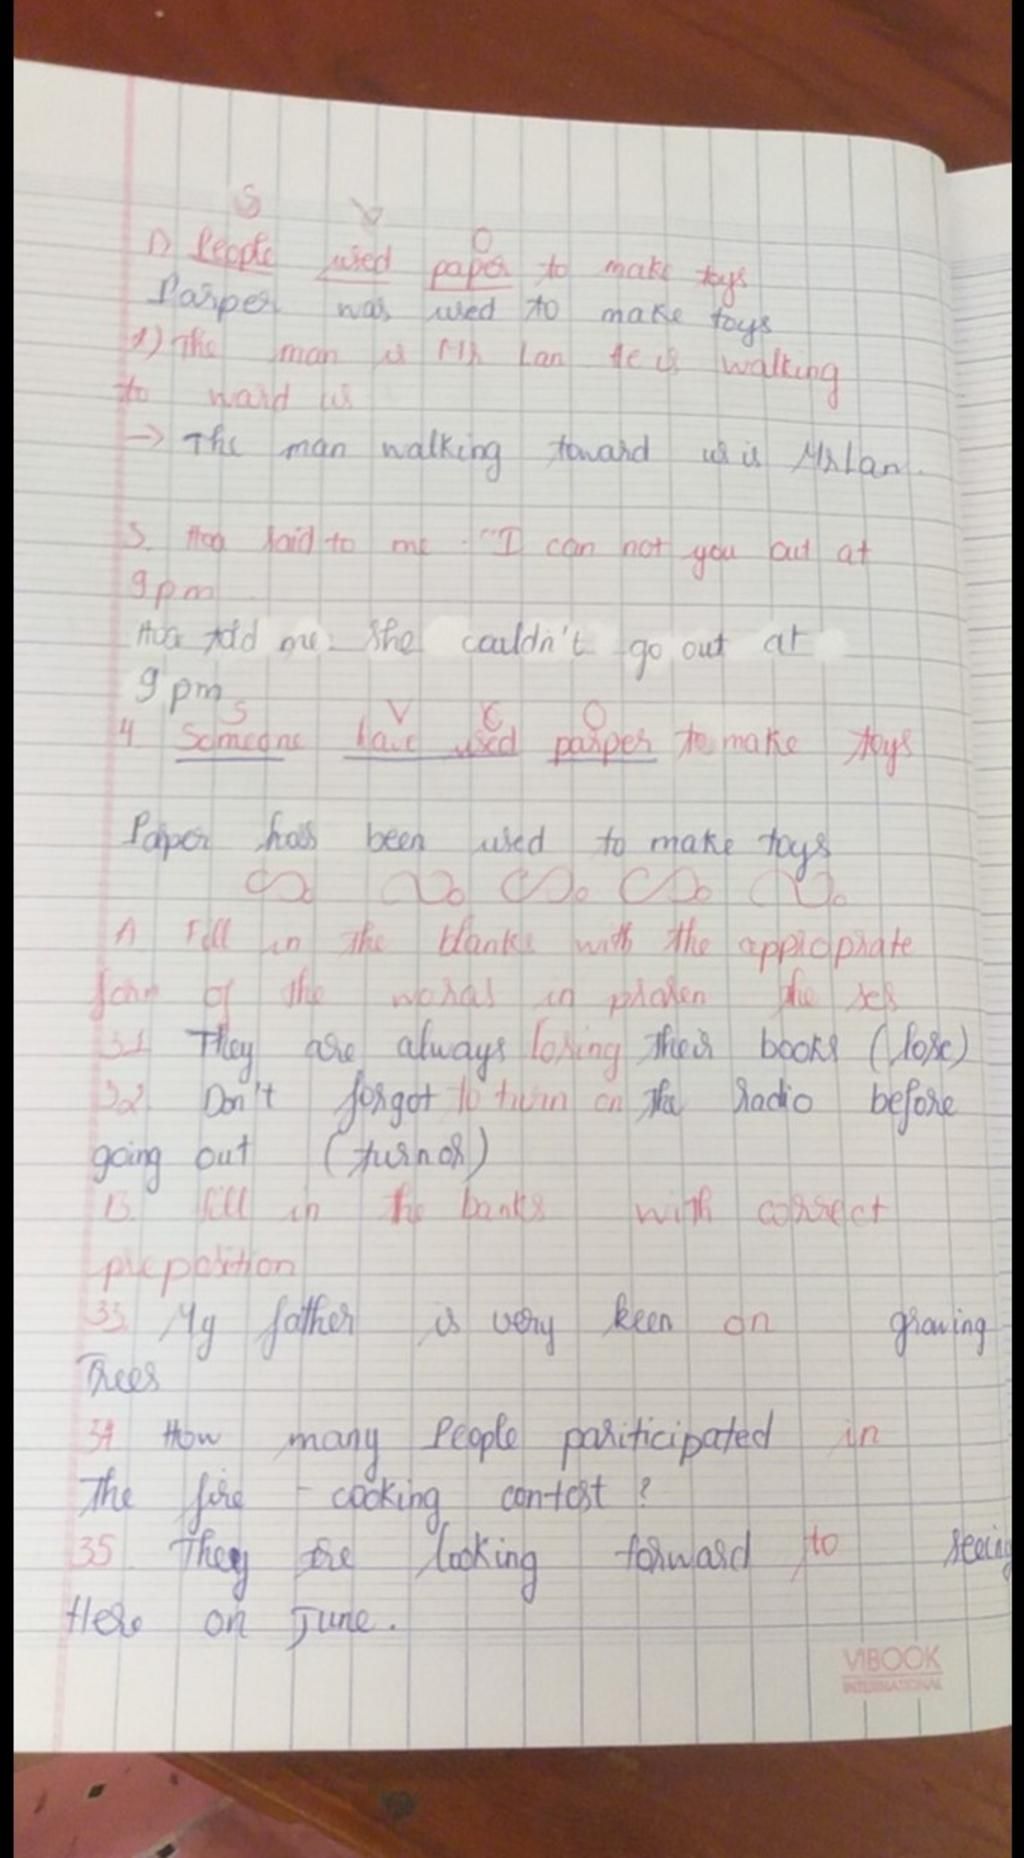 S V O
1) People used paper to make toys
Parper was used to make toys
2) The man is Mr Lan He is walking
to ward us
→ The man walking toward us is Mr Lan.
3. Hoa said to me "I can not you out at
9pm
Hoa told me she couldn't go out at
9 pm
S V C O
4. Someone have used parper to make toys
Paper has been used to make toys
A Fill in the blanks with the appropriate
form of the words in
31 They are always losing their books (lose)
32 Don't forgot to turn on the radio before
going out (turn on)
B. fill in the banks with correct
preposition
33. My father is very keen on growing
Trees
34 How many People pariticipated in
The fire - cooking contest ?
35 They are looking forward to seeing
Here on June.
VIBOOK
INTERNATIONAL